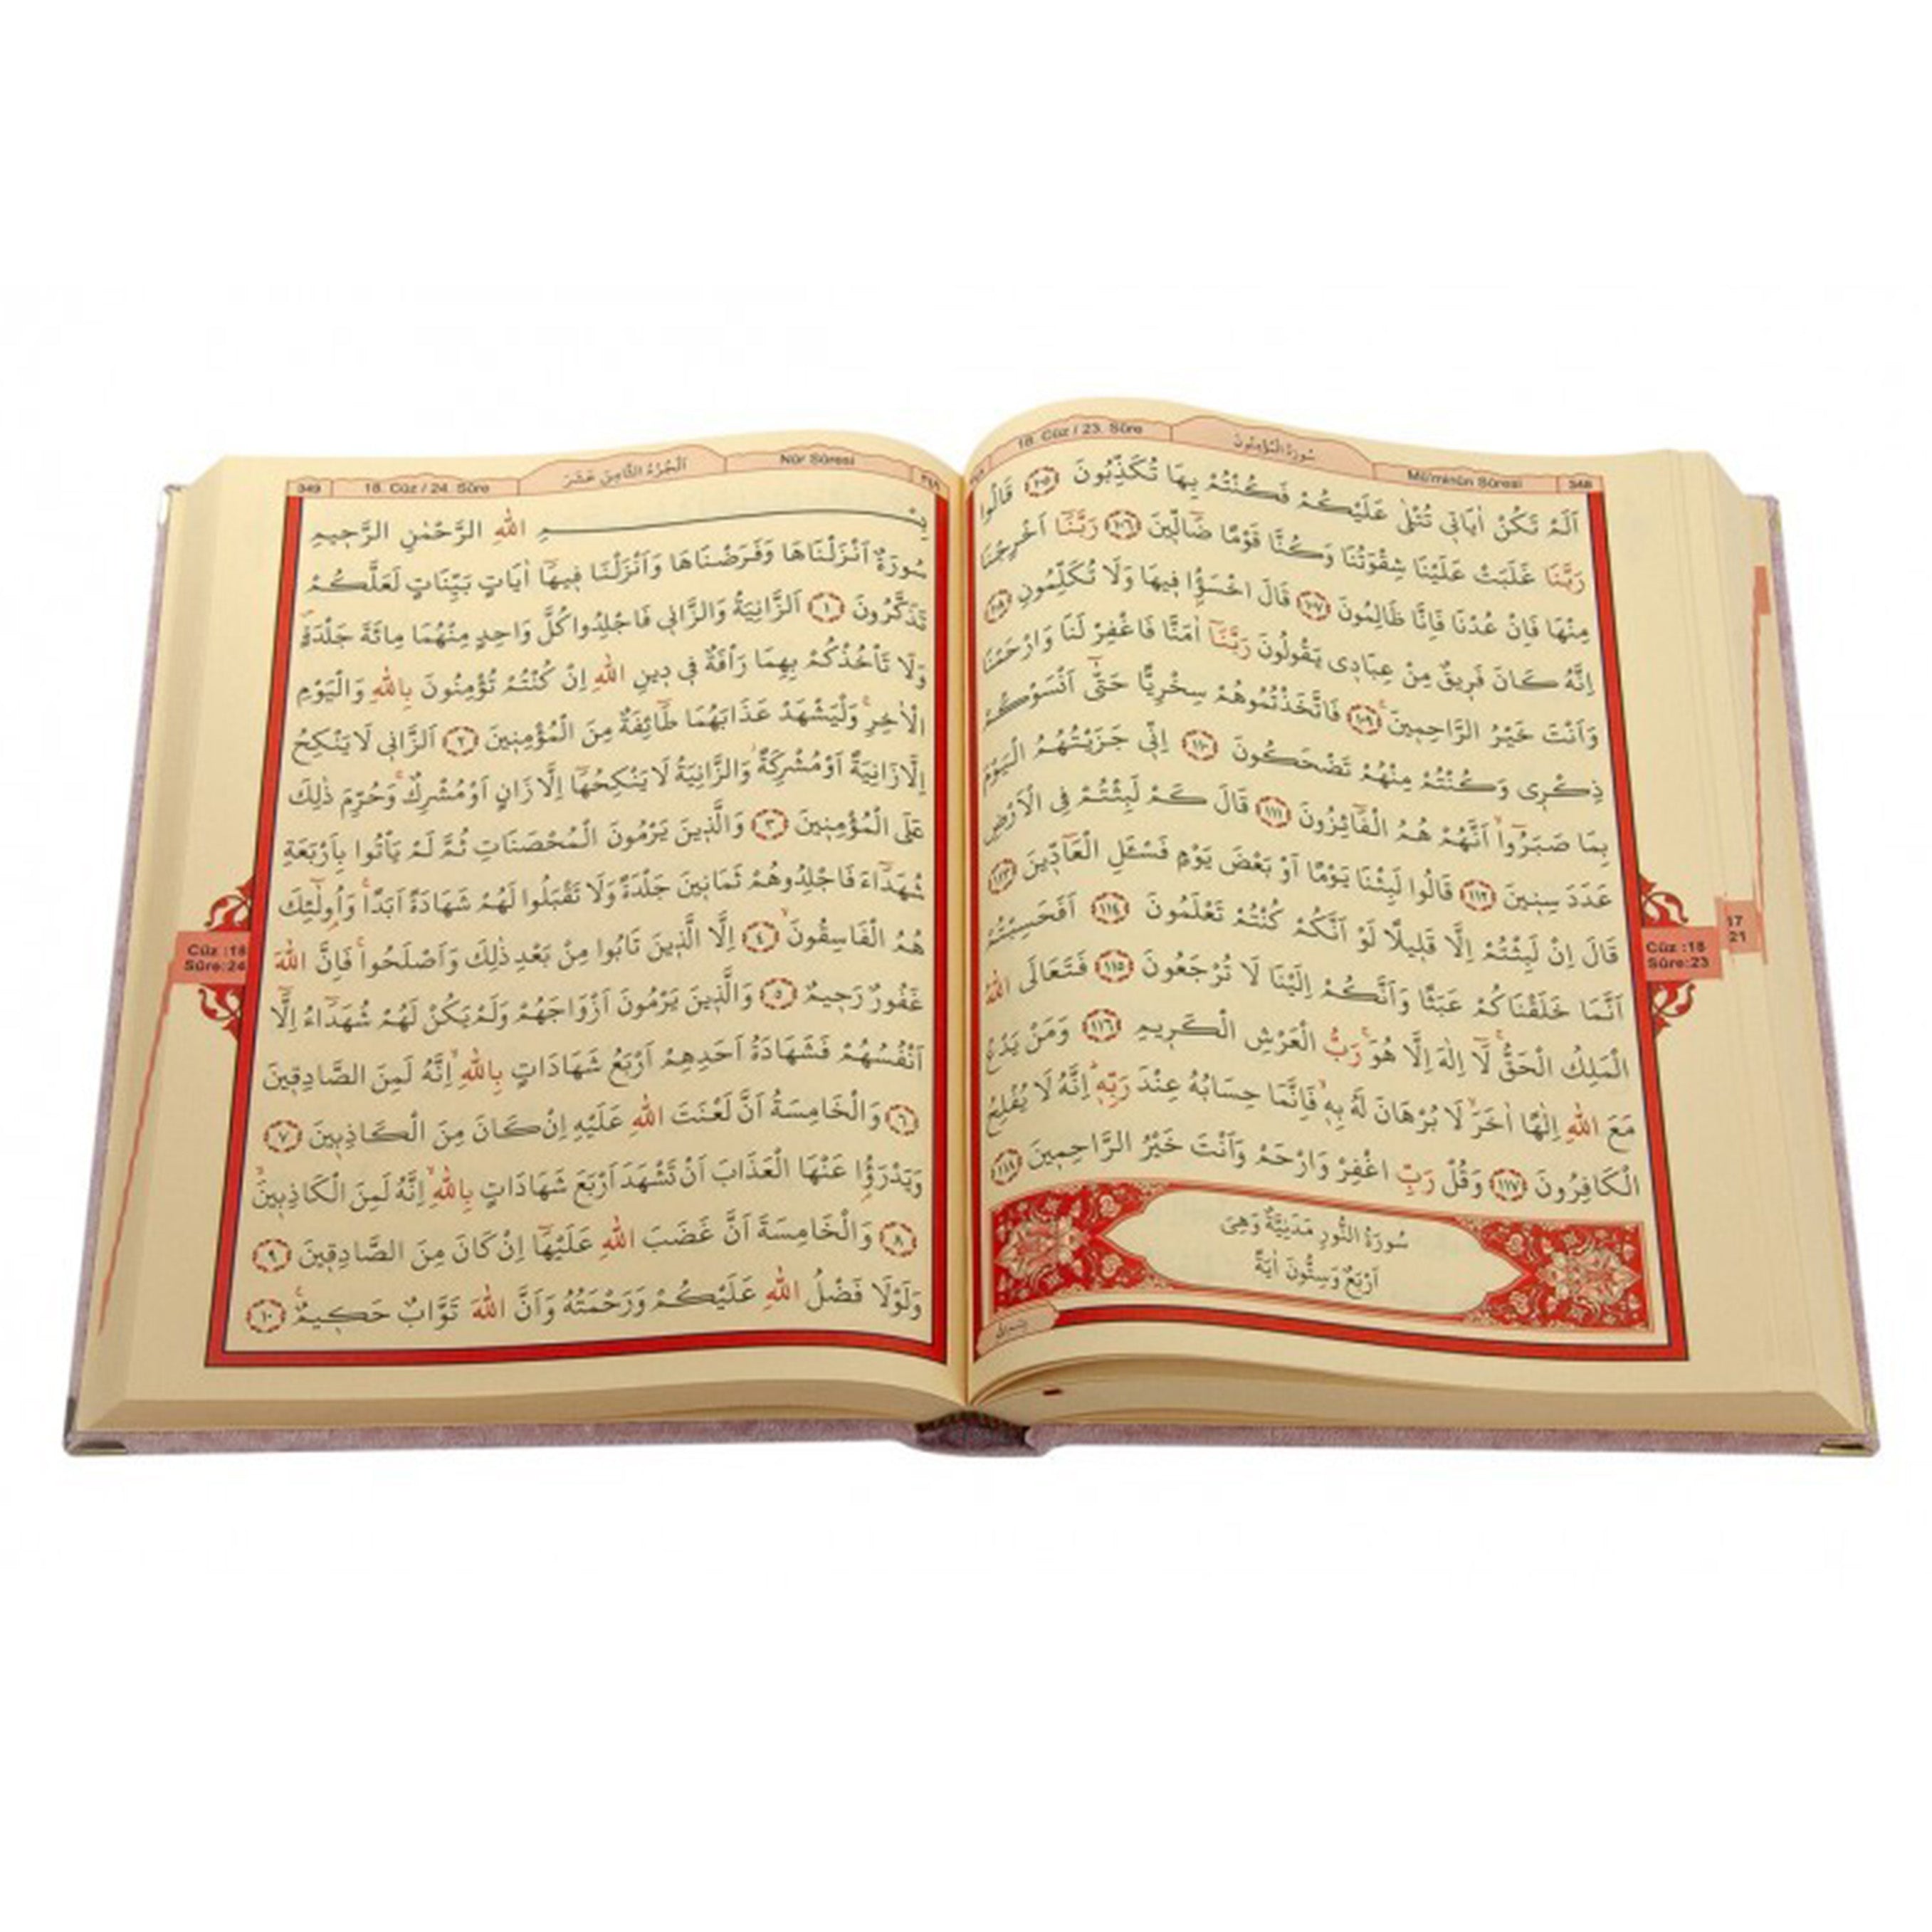 348 Mü'minûn Sûresi سُورَةُ الْمُؤْمِنُونَ 18. Cüz / 23. Sûre
اَلَمْ تَكُنْ اٰيَاتٖى تُتْلٰى عَلَيْكُمْ فَكُنْتُمْ بِهَا تُكَذِّبُونَ ﴿١٠٥﴾ قَالُوا
رَبَّنَا غَلَبَتْ عَلَيْنَا شِقْوَتُنَا وَكُنَّا قَوْمًا ضَٓالّٖينَ ﴿١٠٦﴾ رَبَّنَٓا اَخْرِجْنَا
مِنْهَا فَاِنْ عُدْنَا فَاِنَّا ظَالِمُونَ ﴿١٠٧﴾ قَالَ اخْسَؤُ۫ا فٖيهَا وَلَا تُكَلِّمُونِ ﴿١٠٨﴾
اِنَّهُ كَانَ فَرٖيقٌ مِنْ عِبَادٖى يَقُولُونَ رَبَّنَٓا اٰمَنَّا فَاغْفِرْ لَنَا وَارْحَمْنَا
وَاَنْتَ خَيْرُ الرَّاحِمٖينَۚ ﴿١٠٩﴾ فَاتَّخَذْتُمُوهُمْ سِخْرِيًّا حَتّٰٓى اَنْسَوْكُمْ
ذِكْرٖى وَكُنْتُمْ مِنْهُمْ تَضْحَكُونَ ﴿١١٠﴾ اِنّٖى جَزَيْتُهُمُ الْيَوْمَ
بِمَا صَبَرُٓواۙ اَنَّهُمْ هُمُ الْفَٓائِزُونَ ﴿١١١﴾ قَالَ كَمْ لَبِثْتُمْ فِى الْاَرْضِ
عَدَدَ سِنٖينَ ﴿١١٢﴾ قَالُوا لَبِثْنَا يَوْمًا اَوْ بَعْضَ يَوْمٍ فَسْـَٔلِ الْعَٓادّٖينَ ﴿١١٣﴾
قَالَ اِنْ لَبِثْتُمْ اِلَّا قَلٖيلًا لَوْ اَنَّكُمْ كُنْتُمْ تَعْلَمُونَ ﴿١١٤﴾ اَفَحَسِبْتُمْ
اَنَّمَا خَلَقْنَاكُمْ عَبَثًا وَاَنَّكُمْ اِلَيْنَا لَا تُرْجَعُونَ ﴿١١٥﴾ فَتَعَالَى اللّٰهُ
الْمَلِكُ الْحَقُّۚ لَٓا اِلٰهَ اِلَّا هُوَۚ رَبُّ الْعَرْشِ الْكَرٖيمِ ﴿١١٦﴾ وَمَنْ يَدْعُ
مَعَ اللّٰهِ اِلٰهًا اٰخَرَۙ لَا بُرْهَانَ لَهُ بِهٖۙ فَاِنَّمَا حِسَابُهُ عِنْدَ رَبِّهٖؕ اِنَّهُ لَا يُفْلِحُ
الْكَافِرُونَ ﴿١١٧﴾ وَقُلْ رَبِّ اغْفِرْ وَارْحَمْ وَاَنْتَ خَيْرُ الرَّاحِمٖينَ ﴿١١٨﴾
سُورَةُ النُّورِ مَدَنِيَّةٌ وَهِىَ
اَرْبَعٌ وَسِتُّونَ اٰيَةً
Cüz :18
Sûre:23
17
21
Nûr Sûresi اَلْجُزْءُ الثَّامِنَ عَشَرَ 18. Cüz / 24. Sûre 349
بِسْمِ اللّٰهِ الرَّحْمٰنِ الرَّحٖيمِ
سُورَةٌ اَنْزَلْنَاهَا وَفَرَضْنَاهَا وَاَنْزَلْنَا فٖيهَٓا اٰيَاتٍ بَيِّنَاتٍ لَعَلَّكُمْ
تَذَكَّرُونَ ﴿١﴾ اَلزَّانِيَةُ وَالزَّانٖى فَاجْلِدُوا كُلَّ وَاحِدٍ مِنْهُمَا مِائَةَ جَلْدَةٍۖ
وَلَا تَاْخُذْكُمْ بِهِمَا رَاْفَةٌ فٖى دٖينِ اللّٰهِ اِنْ كُنْتُمْ تُؤْمِنُونَ بِاللّٰهِ وَالْيَوْمِ
الْاٰخِرِۚ وَلْيَشْهَدْ عَذَابَهُمَا طَٓائِفَةٌ مِنَ الْمُؤْمِنٖينَ ﴿٢﴾ اَلزَّانٖى لَا يَنْكِحُ
اِلَّا زَانِيَةً اَوْ مُشْرِكَةًؗ وَالزَّانِيَةُ لَا يَنْكِحُهَٓا اِلَّا زَانٍ اَوْ مُشْرِكٌۚ وَحُرِّمَ ذٰلِكَ
عَلَى الْمُؤْمِنٖينَ ﴿٣﴾ وَالَّذٖينَ يَرْمُونَ الْمُحْصَنَاتِ ثُمَّ لَمْ يَاْتُوا بِاَرْبَعَةِ
شُهَدَٓاءَ فَاجْلِدُوهُمْ ثَمَانٖينَ جَلْدَةً وَلَا تَقْبَلُوا لَهُمْ شَهَادَةً اَبَدًاۚ وَاُو۬لٰٓئِكَ
هُمُ الْفَاسِقُونَۙ ﴿٤﴾ اِلَّا الَّذٖينَ تَابُوا مِنْ بَعْدِ ذٰلِكَ وَاَصْلَحُواۚ فَاِنَّ اللّٰهَ
غَفُورٌ رَحٖيمٌ ﴿٥﴾ وَالَّذٖينَ يَرْمُونَ اَزْوَاجَهُمْ وَلَمْ يَكُنْ لَهُمْ شُهَدَٓاءُ اِلَّٓا
اَنْفُسُهُمْ فَشَهَادَةُ اَحَدِهِمْ اَرْبَعُ شَهَادَاتٍ بِاللّٰهِۙ اِنَّهُ لَمِنَ الصَّادِقٖينَ
﴿٦﴾ وَالْخَامِسَةُ اَنَّ لَعْنَتَ اللّٰهِ عَلَيْهِ اِنْ كَانَ مِنَ الْكَاذِبٖينَ ﴿٧﴾
وَيَدْرَؤُ۬ا عَنْهَا الْعَذَابَ اَنْ تَشْهَدَ اَرْبَعَ شَهَادَاتٍ بِاللّٰهِۙ اِنَّهُ لَمِنَ الْكَاذِبٖينَۙ
﴿٨﴾ وَالْخَامِسَةَ اَنَّ غَضَبَ اللّٰهِ عَلَيْهَٓا اِنْ كَانَ مِنَ الصَّادِقٖينَ ﴿٩﴾
وَلَوْلَا فَضْلُ اللّٰهِ عَلَيْكُمْ وَرَحْمَتُهُ وَاَنَّ اللّٰهَ تَوَّابٌ حَكٖيمٌۚ ﴿١٠﴾
Cüz :18
Sûre:24